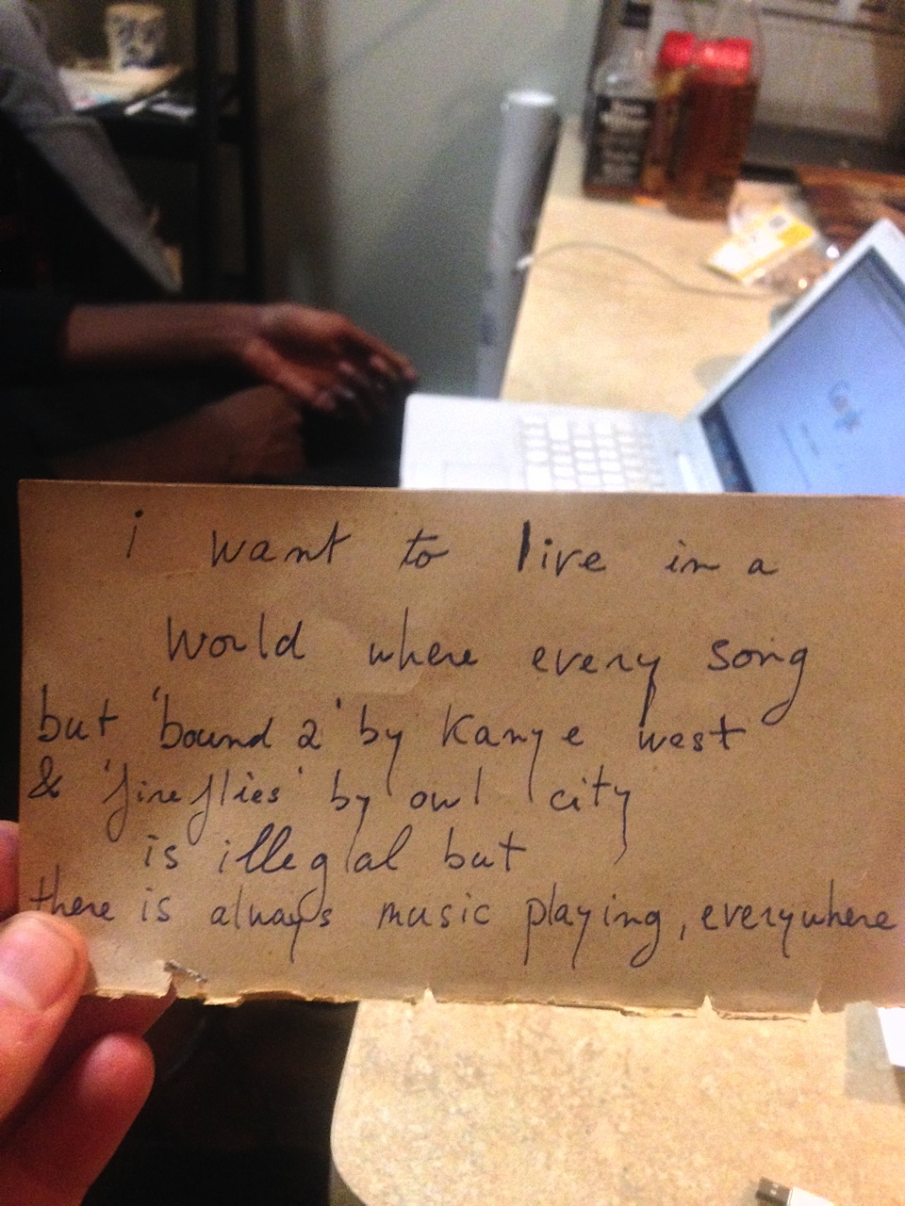 i want to live in a
world where every song
but 'bound 2' by kanye west
& 'fireflies' by owl city
is illegal but
there is always music playing, everywhere